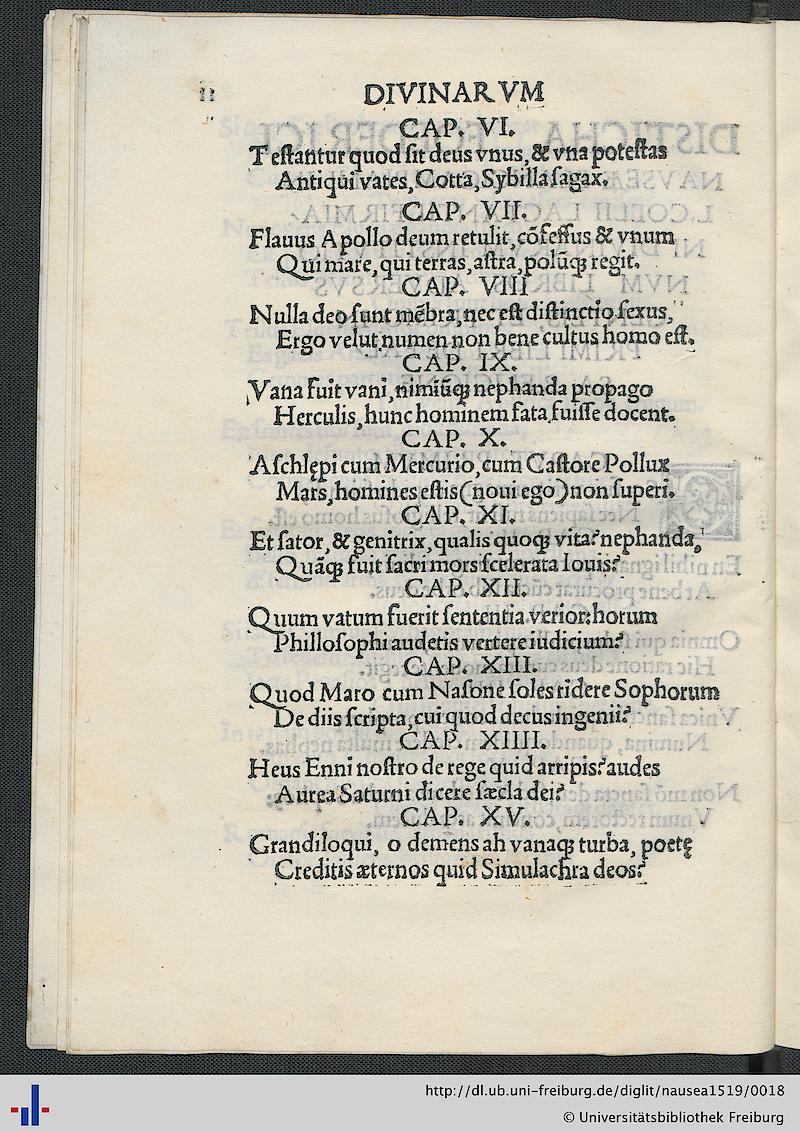 DIVINARVM
CAP. VI.
Testantur quod sit deus vnus, & vna potestas
Antiqui vates, Cotta, Sybilla sagax.
CAP. VII.
Flauus Apollo deum retulit, cõfessus & vnum
Qui mare, qui terras, astra, polũqꝫ regit.
CAP. VIII
Nulla deo sunt mẽbra, nec est distinctio sexus,
Ergo velut numen non bene cultus homo est.
CAP. IX.
Vana fuit vani, nimiũqꝫ nephanda propago
Herculis, hunc hominem fata fuisse docent.
CAP. X.
Aschlępi cum Mercurio, cum Castore Pollux
Mars, homines estis (noui ego) non superi.
CAP. XI.
Et sator, & genitrix, qualis quoqꝫ vita? nephanda,
Quãqꝫ fuit sacri mors scelerata Iouis?
CAP. XII.
Quum vatum fuerit sententia verior: horum
Phillosophi audetis vertere iudicium?
CAP. XIII.
Quod Maro cum Nasone soles ridere Sophorum
De diis scripta, cui quod decus ingenii?
CAP. XIIII.
Heus Enni nostro de rege quid arripis? audes
Aurea Saturni dicere sæcla dei?
CAP. XV.
Grandiloqui, o demens ah vanaqꝫ turba, poetę
Creditis æternos quid Simulachra deos?
http://dl.ub.uni-freiburg.de/diglit/nausea1519/0018
© Universitätsbibliothek Freiburg